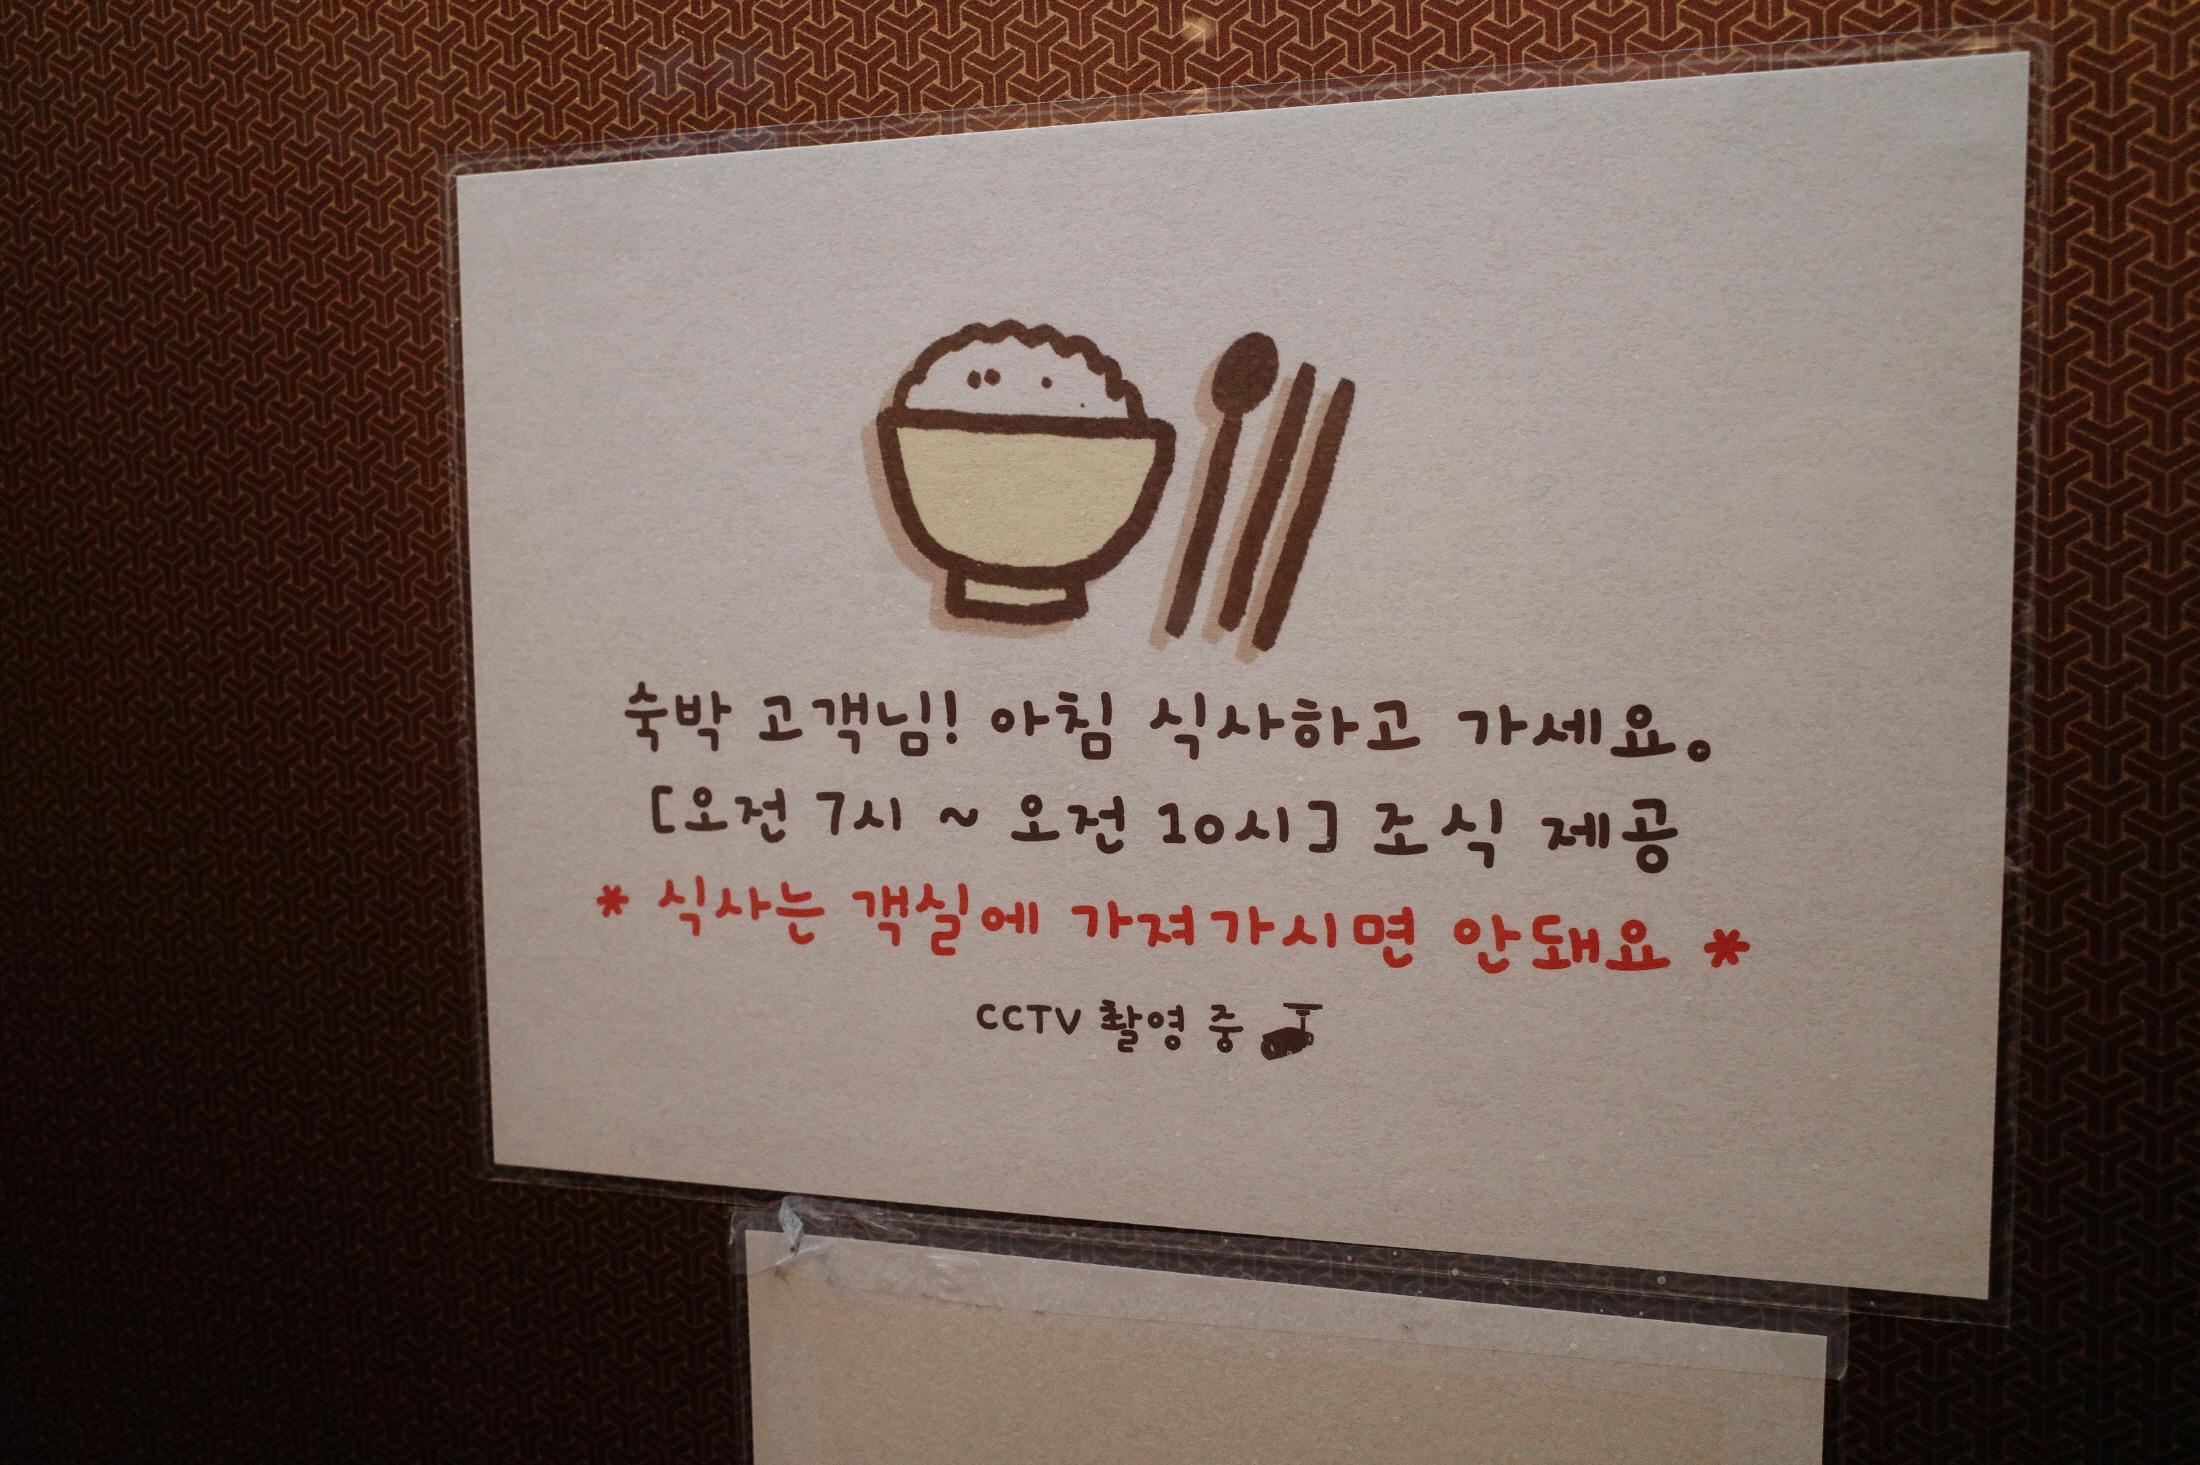 숙박 고객님! 아침 식사하고 가세요。
[오전 7시 ~ 오전 10시] 조식 제공
* 식사는 객실에 가져가시면 안돼요 *
CCTV 촬영 중